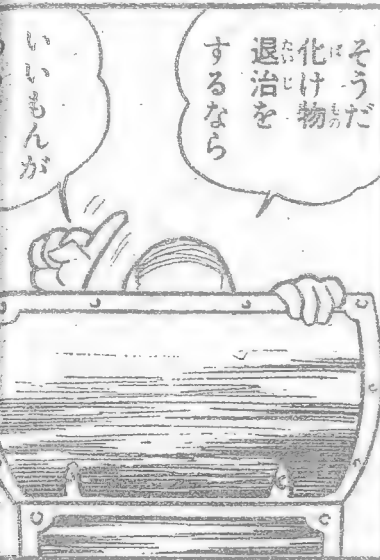 そうだ
化け物
退治を
するなら
いいもんが